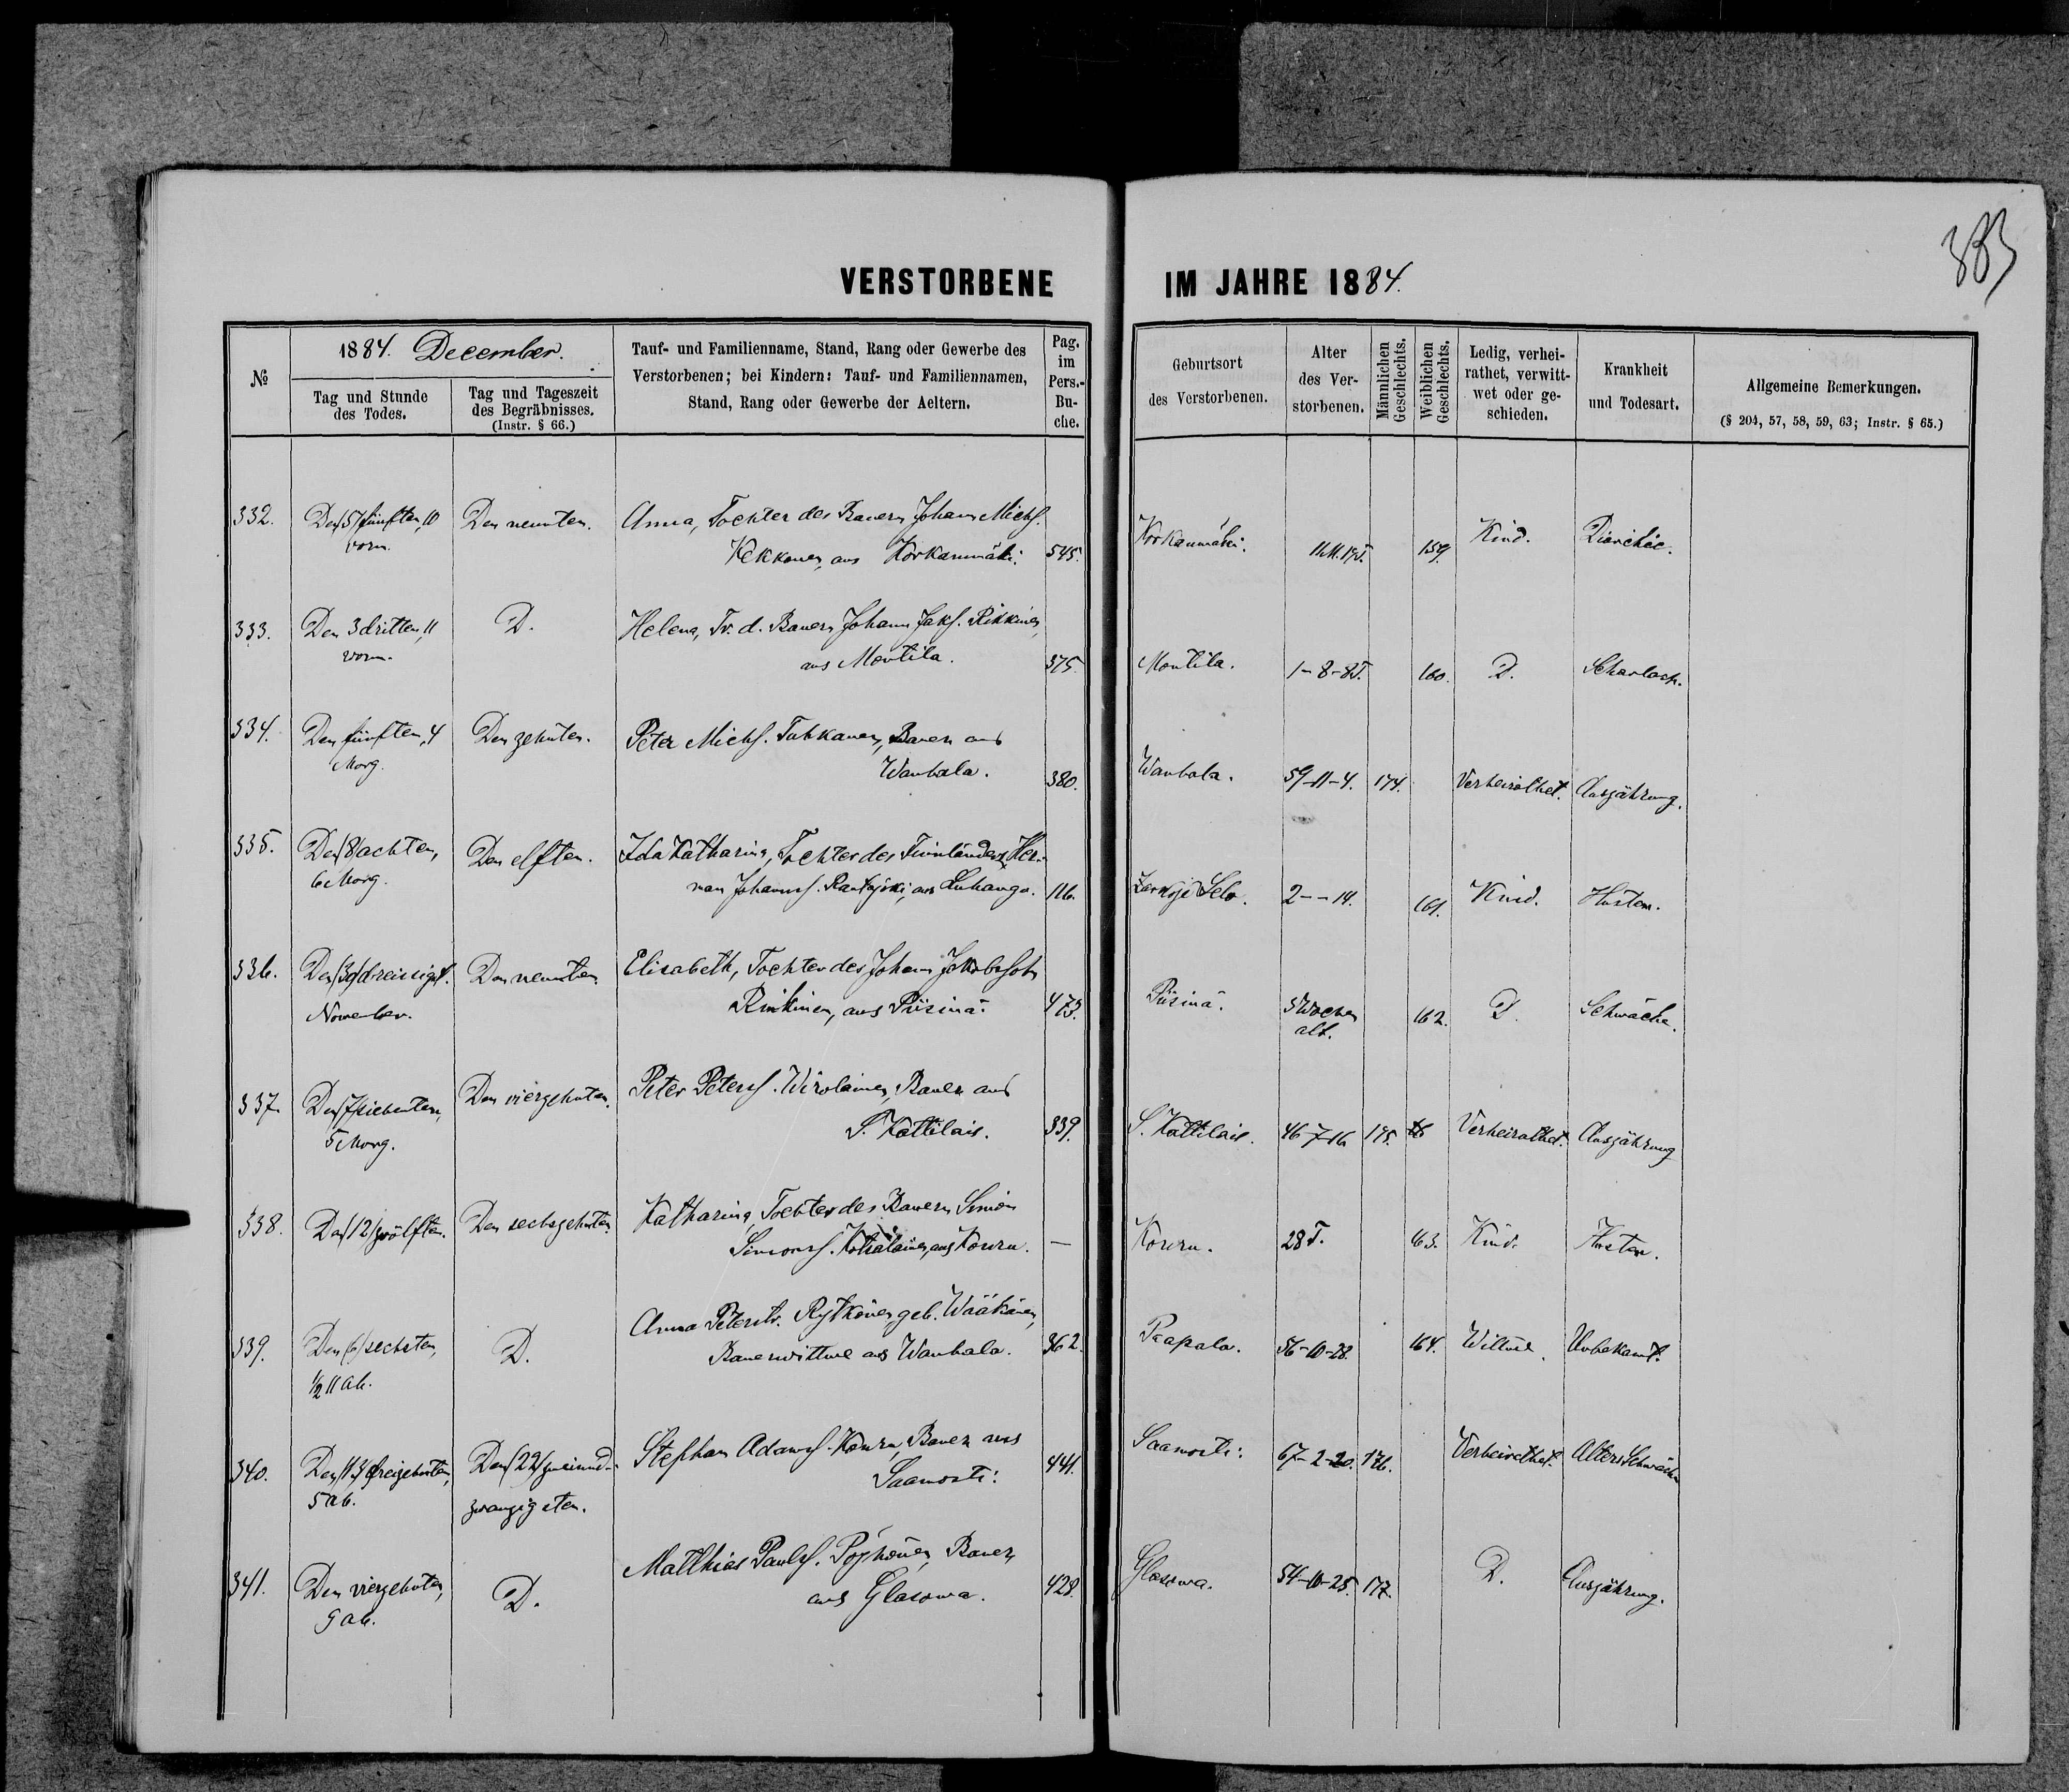 383
VERSTORBENE IM JAHRE 1884.
№
1884. December.
Tag und Stunde des Todes.
Tag und Tageszeit des Begräbnisses. (Instr. § 66.)
Tauf- und Familienname, Stand, Rang oder Gewerbe des Verstorbenen; bei Kindern: Tauf- und Familiennamen, Stand, Rang oder Gewerbe der Aeltern.
Pag. im Pers.-Buche.
Geburtsort des Verstorbenen.
Alter des Verstorbenen.
Männlichen Geschlechts.
Weiblichen Geschlechts.
Ledig, verheirathet, verwittwet oder geschieden.
Krankheit und Todesart.
Allgemeine Bemerkungen.
(§ 204, 57, 58, 59, 63; Instr. § 65.)
332. Den /5/ fünften, 10 Den neunten. Anna, Tochter des Bauern Johann Michs. Korkanmäki. 11M.19T. 159. Kind.
vorm. Kekkonen, aus Korkanmäki. 545.
333. Den 3 dritten, 11 D. Helena, Tr. d. Bauern Johann Jaks. Rikkinen,
vorm. aus Montila. 375. Montila. 1-8-8T. 160. D. Scharlach.
334. Den fünften, 4 Den zehnten. Peter Michs. Tuhkanen, Bauer aus
Morg. Wanhala. 380. Wanhala. 59-11-4. 174. Verheirathet. Auszährung.
335. Den /8/ achten, Den elften. Ida Katharina, Tochter des Finnländers Her-
6 Morg. man Johanns. aus Luhanga. 116. Zarskoje Selo. 2--14. 161. Kind. Husten.
336. Den /30/ dreissigst. Den neunten. Elisabeth, Tochter des Johann Jakobsohn
November. aus Püsinä. 473. Püsinä. 3 Wochen alt. 162. D. Schwäche.
337. Den /7/ siebenten, Den vierzehnten. Peter Peters. Wirolainen, Bauer aus
5 Morg. S. Kattilais. 339. S. Kattilais. 46-7-16 175. Verheirathet. Auszährung
338. Den /12/ zwölften. Den sechszehnten. Katharina, Tochter des Bauern Simon
Simons. aus Kowru. — Kowru. 28 T. 163. Kind. Husten.
339. Den /6/ sechsten, D. Anna Peterstr. Rytkönen geb. Wääkänen,
½ 11 ab. Bauerwittwe aus Wanhala. 362. Paapala. 56-10-28. 164. Wittwe. Unbekannt.
340. Den /13/ dreizehnten, Den /22/ zweiund- Stephan Adams. Bauer aus
5 ab. zwanzigsten. Saamosti: 441. Saamosti: 67-2-20. 176. Verheirathet. Altersschwäche
341. Den vierzehnten, D. Matthias Pauls. Pöyhönen, Bauer
9 ab. aus Glasowa. 428. Glasowa. 54-10-25. 177. D. Auszährung.